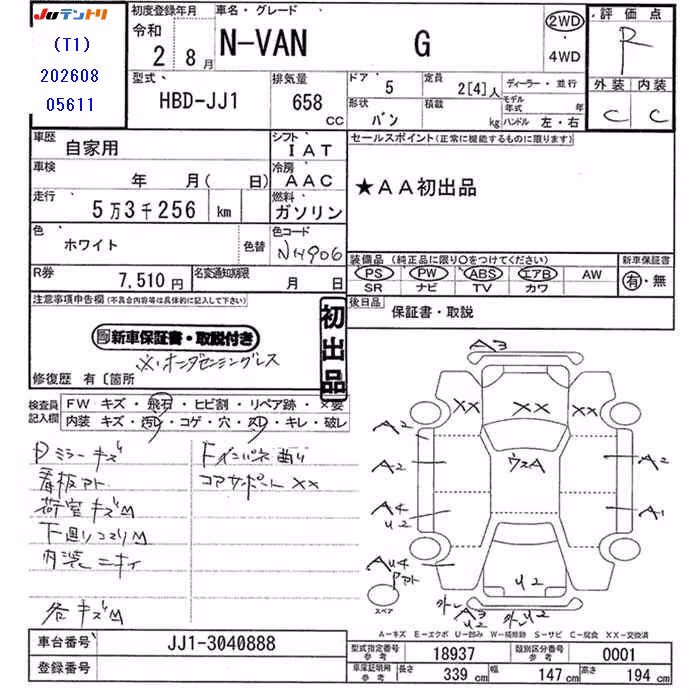 JUテントリ
(T1)
202608
05611
初度登録年月
令和
2 8月
車名・グレード
N-VAN G
2WD
・
4WD
評価点
R
外装 内装
C C
型式
HBD-JJ1
排気量
658
CC
ドア
5
定員
2[4]人
ディーラー・並行
形状
バン
積載
kg
モデル年式 年
ハンドル 左・右
車歴
自家用
シフト
IAT
車検
年 月( 日)
冷房
AAC
走行
5万3千256 km
燃料
ガソリン
色
ホワイト
色替
色コード
NH906
R券
7,510円
名変通知期限
月 日
セールスポイント(正常に機能するものに限ります)
★AA初出品
装備品(純正品に限り○をつけてください)
PS PW ABS エアB AW
SR ナビ TV カワ
新車保証書
有・無
後日品
保証書・取説
注意事項申告欄(不具合内容等は具体的に記入して下さい)
新車保証書・取説付き
※・ホンダセンシングレス
初出品
修復歴 有〔箇所
検査員記入欄
FW キズ・飛石・ヒビ割・リペア跡・×要
内装 キズ・汚レ・コゲ・穴・スレ・キレ・破レ
Pミラーキズ
看板アト
荷室キズM
下廻リコスリM
内装ニオイ
各キズM
Fインパネ曲リ
コアサポート XX
A3
XX XX XX
A2
A2
A4
U2
AU4
Pアト
ウスA
A2
A1
U2
外レ A3
U2
外レ
スペア
A－キズ E－エクボ U－凹み W－補修跡 S－サビ C－腐食 XX－交換済
車台番号
JJ1-3040888
登録番号
型式指定番号
参考
18937
類別区分番号
参考
0001
車庫証明用
参考
長さ
339 cm
幅
147 cm
高さ
194 cm